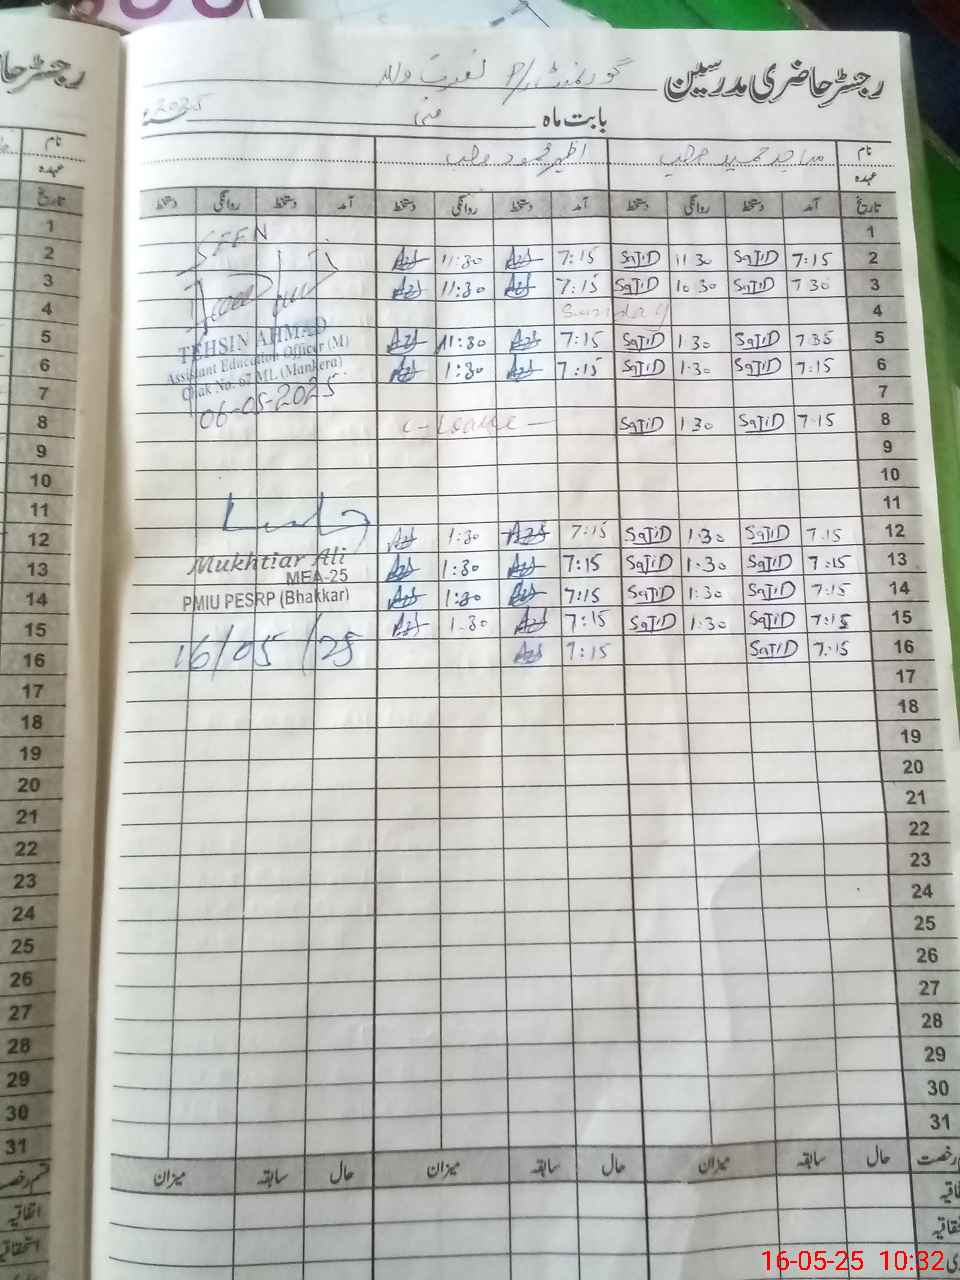 رجسٹر حاضری مدرسین گورنمنٹ P/
بابت ماہ مئی 2025
نام ساجد حمید صاحب اظہر محمود صاحب
عہدہ
تاریخ آمد دستخط روانگی دستخط آمد دستخط روانگی دستخط آمد دستخط روانگی دستخط
1
2 7:15 SajiD 11 30 SajiD 7:15 Azh 11:30 Azh
3 7 30 SajiD 10 30 SajiD 7:15 Azh 11:30 Azh
4 Sunday
5 7 35 SajiD 1 30 SajiD 7:15 Azh 11:30 Azh
6 7:15 SajiD 1·30 SajiD 7:15 Azh 1:30 Azh
7
8 7·15 SajiD 1 30 SajiD C-Leave
9
10
11
12 7.15 SajiD 1·30 SajiD 7:15 Azh 1:30 Azh
13 7:15 SajiD 1·30 SajiD 7:15 Azh 1:30 Azh
14 7:15 SajiD 1:30 SajiD 7:15 Azh 1:30 Azh
15 7:15 SajiD 1:30 SajiD 7:15 Azh 1.30 Azh
16 7:15 SajiD 7:15 Azh
17
18
19
20
21
22
23
24
25
26
27
28
29
30
31
SEEN
TEHSIN AHMAD
Assistant Education Officer (M)
Chak No. 67 ML (Mankera)
06-05-2025
Mukhtiar Ali
MEA-25
PMIU PESRP (Bhakkar)
16/05/25
رخصت حال سابقہ میزان حال سابقہ میزان حال سابقہ میزان
رجسٹر حا
نام
عہدہ
تاریخ
1
2
3
4
5
6
7
8
9
10
11
12
13
14
15
16
17
18
19
20
21
22
23
24
25
26
27
28
29
30
31
قسم رخصت
اتفاقیہ
استحقاقیہ
16-05-25 10:32